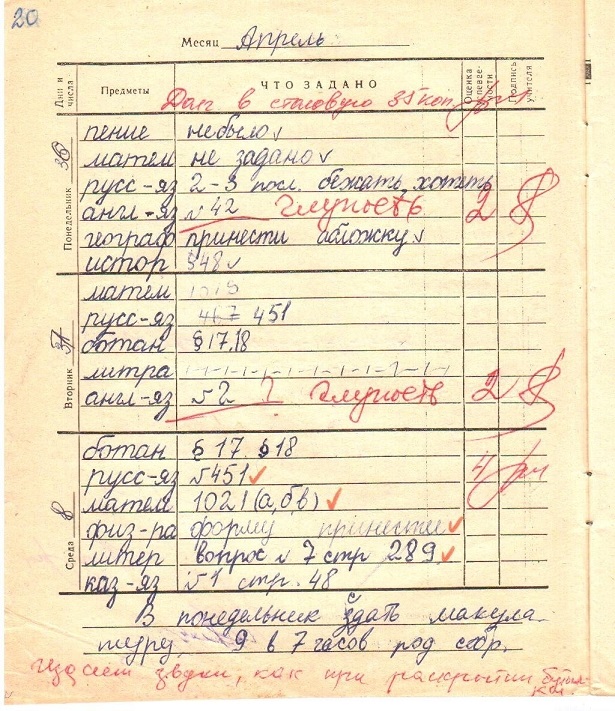 20
Месяц Апрель
Дни и числа Предметы ЧТО ЗАДАНО Оценка успевае- мости Подпись учителя
Долг в столовую 35 коп.
Понедельник 36
пение небыло
матем не задано
русс-яз 2-3 посл. бежать, хотеть
англ-яз №42 Глупость 2
географ принести обложку
истор §48
Вторник 37
матем
русс-яз 467 451
ботан §17,18
литра
англ-яз №2 Глупость 2
Среда 8
ботан §17 §18
русс-яз №451 4
матем 1021(а,б,в)
физ-ра форму принести
литер вопрос №7 стр 289
каз-яз №1 стр. 48
В понедельник сдать макула-
туру 9 в 7 часов род собр.
Издает звуки, как при раскрытии бутыл-
ки